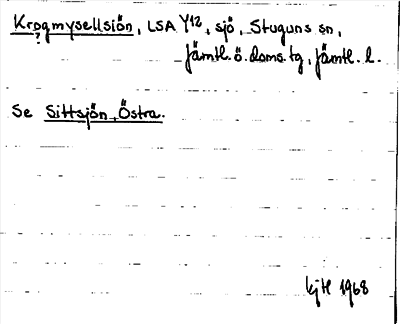 Krogmysellsjön, LSA Y12, sjö, Stuguns sn,
?
Jämtl. ö. doms. tg, Jämtl. l.
Se Sittsjön, Östra.
kjH 1968